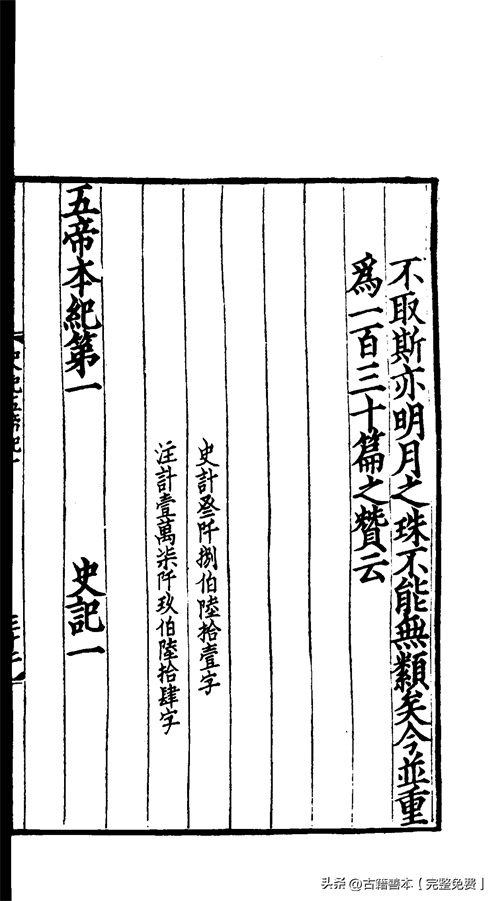 不取斯亦明月之珠不能無纇矣今並重
爲一百三十篇之贊云
史計叄阡捌伯陸拾壹字
注計壹萬柒阡玖伯陸拾肆字
五帝本紀第一 史記一
頭条 @古籍善本【完整免费】